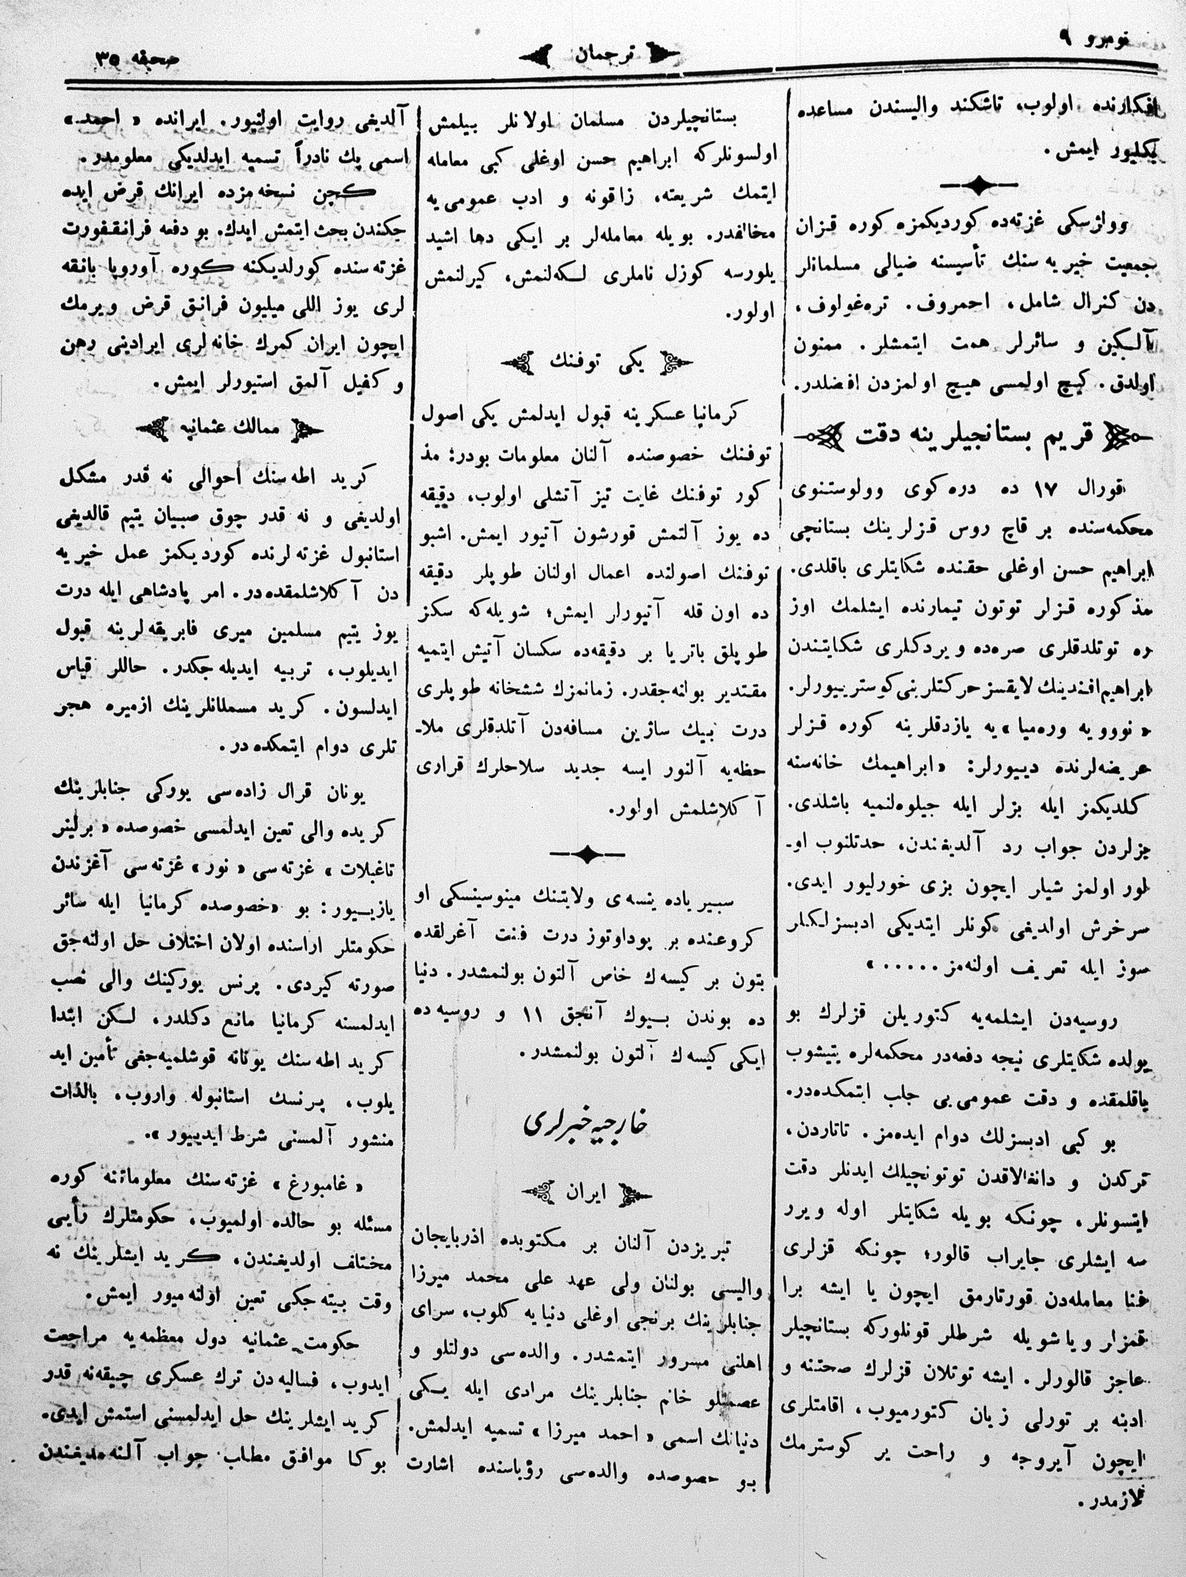 نومرو ٩
ترجمان
صحیفه ٣٥
افکارنده اولوب، تاشکند والیسندن مساعده
بکلیور ایمش.
وولژسکی غزته‌ده کوردیکمزه کوره قزان
جمعیت خیریه سنك تأسیسنه ضیالی مسلمانلر
دن کنرال شامل، احمروف. تره‌غولوف،
آلکین و سائرلر همت ایتمشلر. ممنون
اولدق. کیچ اولمسی هیچ اولمزدن افضلدر.
قریم بستانجیلرینه دقت
قورال ١٧ ده دره کوی وولوستنوی
محکمه‌سنده بر قاچ روس قزلرینك بستانچی
ابراهیم حسن اوغلی حقنده شکایتلری باقلدی.
مذکوره قزلر توتون تیمارنده ایشلمك اوز
ره توتلدقلری صره‌ده ویردکلری شکایتندن
ابراهیم افندینك لایقسز حرکتلرینی کوسترییورلر.
«نوویه وره‌میا» یه یازدقلرینه کوره قزلر
عریضه‌لرنده دییورلر: «ابراهیمك خانه‌سنه
کلدیکمز ایله بزلر ایله جیلوه‌لنمیه باشلدی.
بزلردن جواب رد آلدیغندن، حدتلنوب او۔
لور اولمز شیلر ایچون بزی خورلیور ایدی.
سرخوش اولدیغی کونلر ایتدیکی ادبسزلکلر
سوز ایله تعریف اولنه‌مز.....»
روسیه‌دن ایشلمه‌یه کتوریلن قزلرك بو
یولده شکایتلری نیجه دفعه‌در محکمه‌لره یتیشوب
باقلمقده و دقت عمومی‌یی جلب ایتمکده‌در.
بو کبی ادبسزلك دوام ایده‌مز. تاتاردن،
ترکدن و دانغالاقدن توتونچیلك ایدنلر دقت
ایتسونلر، چونکه بویله شکایتلر اوله ویرر
سه ایشلری جایراب قالور؛ چونکه قزلری
فنا معامله‌دن قورتارمق ایچون یا ایشه برا
قمزلر ویا شویله شرطلر قونلورکه بستانچیلر
عاجز قالورلر. ایشه توتلان قزلرك صحتنه و
ادبنه بر تورلی زیان کتورمیوب، اقامتلری
ایچون آیروجه و راحت یر کوسترمك
لازمدر.
بستانچیلردن مسلمان اولانلر بیلمش
اولسونلرکه ابراهیم حسن اوغلی کبی معامله
ایتمك شریعته، زاقونه و ادب عمومی‌یه
مخالفدر. بویله معامله‌لر بر ایکی دها اشید
یلورسه کوزل ناملری لکه‌لنمش، کیرلنمش
اولور.
یکی توفنك
کرمانیا عسکرینه قبول ایدلمش یکی اصول
توفنك خصوصنده آلنان معلومات بودر؛ مذ
کور توفنك غایت تیز آتشلی اولوب، دقیقه
ده یوز آلتمش قورشون آتیور ایمش. اشبو
توفنك اصولنده اعمال اولنان طوپلر دقیقه
ده اون قله آتیورلر ایمش؛ شویله‌که سکز
طوپلق باتریا بر دقیقه‌ده سکسان آتیش ایتمیه
مقتدیر بولنه‌جقدر. زمانمزك ششخانه طوپلری
درت بیك ساژین مسافه‌دن آتلدقلری ملا۔
حظه‌یه آلنور ایسه جدید سلاحلرك قراری
آکلاشلمش اولور.
سبیریاده ینسه‌ی ولایتنك مینوسینسکی او
کروغنده بر پوداوتوز درت فنت آغرلقده
بتون بر کیسه‌ك خاص آلتون بولنمشدر. دنیا
ده بوندن بیوك آنجق ١١ و روسیه ده
ایکی کیسه‌ك آلتون بولنمشدر.
خارجیه خبرلری
ایران
تبریزدن آلنان بر مکتوبده اذربایجان
والیسی بولنان ولی عهد علی محمد میرزا
جنابلرینك برنجی اوغلی دنیا یه کلوب، سرای
اهلنی مسرور ایتمشدر. والده‌سی دولتلو و
عصمتلو خانم جنابلرینك مرادی ایله یکی
دنیانك اسمی «احمد میرزا» تسمیه ایدلمش.
بو خصوصده والده‌سی رؤیاسنده اشارت
آلدیغی روایت اولنیور. ایرانده «احمد»
اسمی پك نادراً تسمیه ایدلدیکی معلومدر.
کچن نسخه مزده ایرانك قرض ایده
جکندن بحث ایتمش ایدك. بو دفعه فرانقفورت
غزته سنده کورلدیکنه کوره آوروپا بانقه
لری یوز اللی میلیون فرانق قرض ویرمك
ایچون ایران کمرك خانه لری ایرادینی رهن
و کفیل آلمق استیورلر ایمش.
ممالك عثمانیه
کرید اطه سنك احوالی نه قدر مشکل
اولدیغی و نه قدر چوق صبیان یتیم قالدیغی
استانبول غزته لرنده کوردیکمز عمل خیریه
دن آکلاشلمقده در. امر پادشاهی ایله درت
یوز یتیم مسلمین میری فابریقه لرینه قبول
ایدیلوب، تربیه ایدیله جکدر. حاللر قیاس
ایدلسون. کرید مسلمانلرینك ازمیره هجر
تلری دوام ایتمکده در.
یونان قرال زاده سی یورکی جنابلرینك
کریده والی تعین ایدلمسی خصوصده «برلینر
تاغبلات» غزته سی «نور» غزته سی آغزندن
یازییور: بو «خصوصده کرمانیا ایله سائر
حکومتلر اراسنده اولان اختلاف حل اولنه جق
صورته کیردی. پرنس یورکینك والی نصب
ایدلمسنه کرمانیا مانع دکلدر، لکن ابتدا
کرید اطه سنك یونانه قوشلمیه جغی تأمین اید
یلوب، پرنسك استانبوله واروب، بالذات
منشور آلمسنی شرط ایدییور».
«غامبورغ» غزته سنك معلوماتنه کوره
مسئله بو حالده اولمیوب، حکومتلرك رأیی
مختلف اولدیغندن، کرید ایشلرینك نه
وقت بیته جکی تعین اولنه میور ایمش.
حکومت عثمانیه دول معظمه یه مراجعت
ایدوب، فسالیه دن ترك عسکری چیقه نه قدر
کرید ایشلرینك حل ایدلمسنی استمش ایدی.
بوکا موافق مطلب جواب آلنه مدیغندن